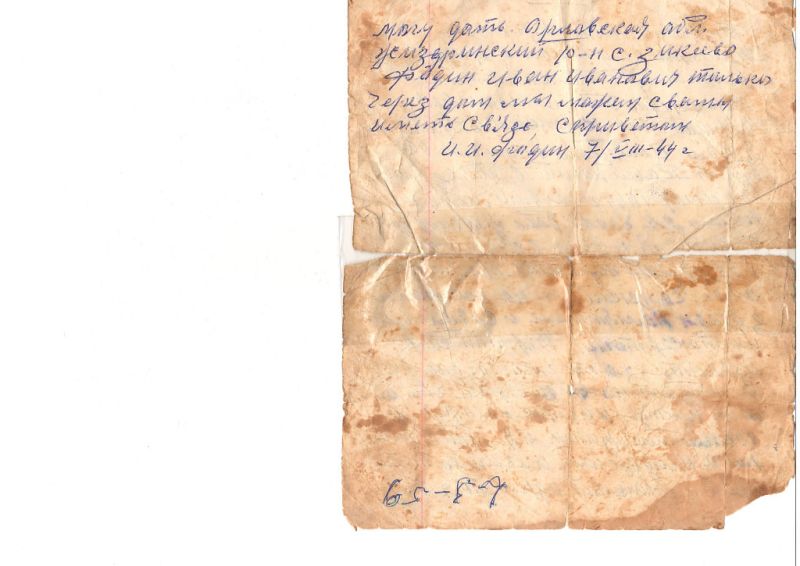 могу дать. Орловская обл.
Жиздринский р-н с. Зикеево
Фадин Иван Иванович только
через дом мы можем с вами
иметь связь, с приветом
И.И. Фадин 7/VIII-44 г